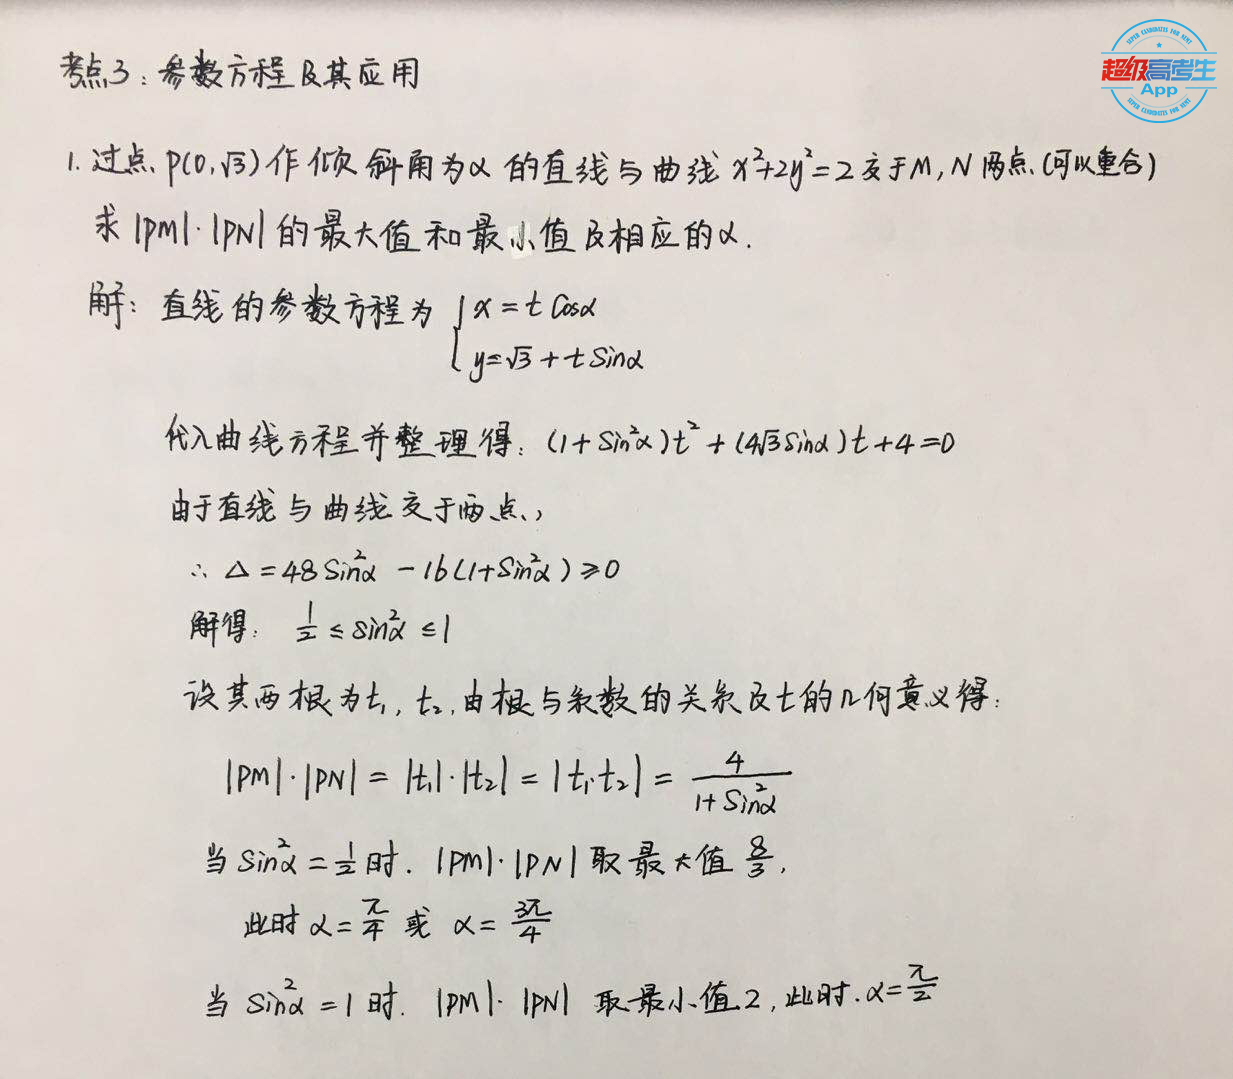 SUPER CANDIDATES FOR NEMT
超级高考生
App
SUPER CANDIDATES FOR NEMT
考点3：参数方程及其应用
1. 过点 P(0,√3) 作倾斜角为α的直线与曲线 x²+2y²=2 交于M, N 两点(可以重合)
求 |PM|·|PN| 的最大值和最小值及相应的α.
解：直线的参数方程为 { x = t cosα
y = √3 + t sinα
代入曲线方程并整理得：(1+sin²α)t² + (4√3 sinα)t + 4 = 0
由于直线与曲线交于两点,
∴ Δ = 48 sin²α - 16(1+sin²α) ≥ 0
解得： 1/2 ≤ sin²α ≤ 1
设其两根为t₁, t₂, 由根与系数的关系及t的几何意义得：
|PM|·|PN| = |t₁|·|t₂| = |t₁·t₂| = 4/(1+sin²α)
当 sin²α = 1/2 时. |PM|·|PN| 取最大值 8/3,
此时 α = π/4 或 α = 3π/4
当 sin²α = 1 时. |PM|·|PN| 取最小值2, 此时. α = π/2